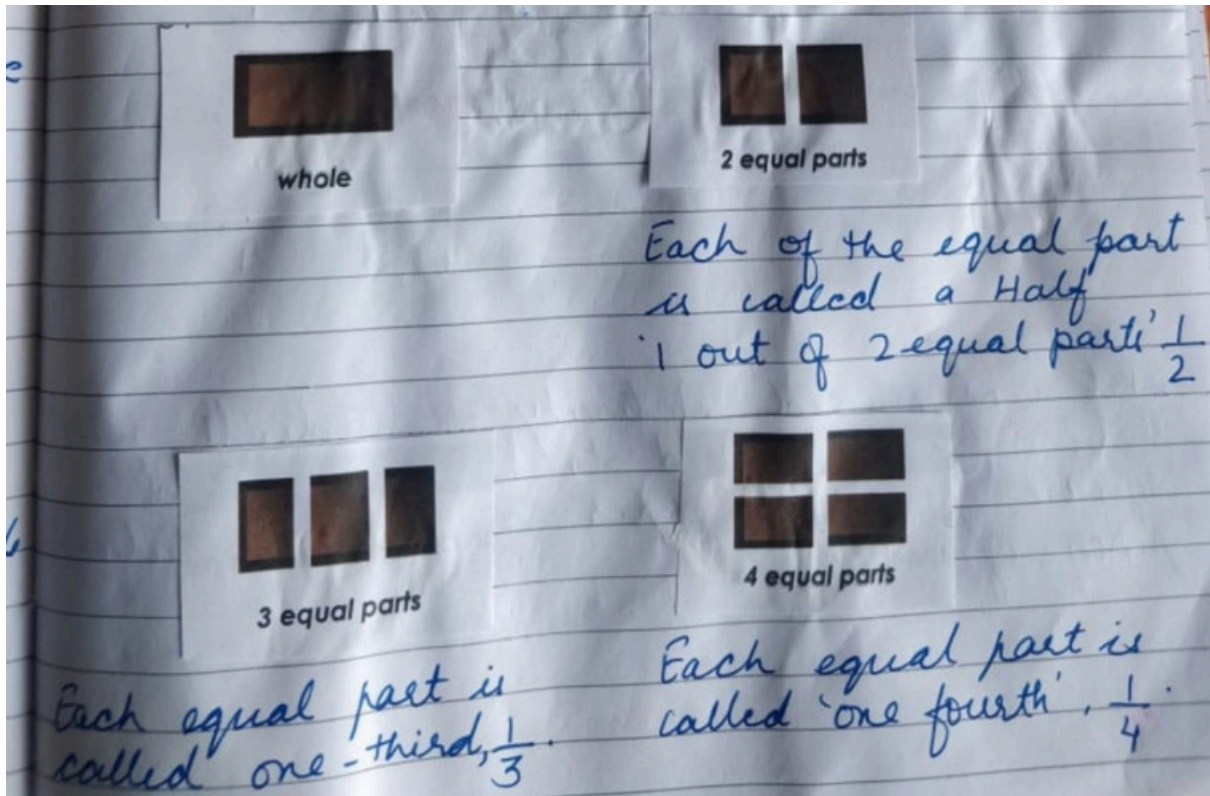 whole
2 equal parts
Each of the equal part
is called a Half
'1 out of 2 equal parts' 1/2
3 equal parts
4 equal parts
Each equal part is
called one-third, 1/3.
Each equal part is
called 'one fourth', 1/4.